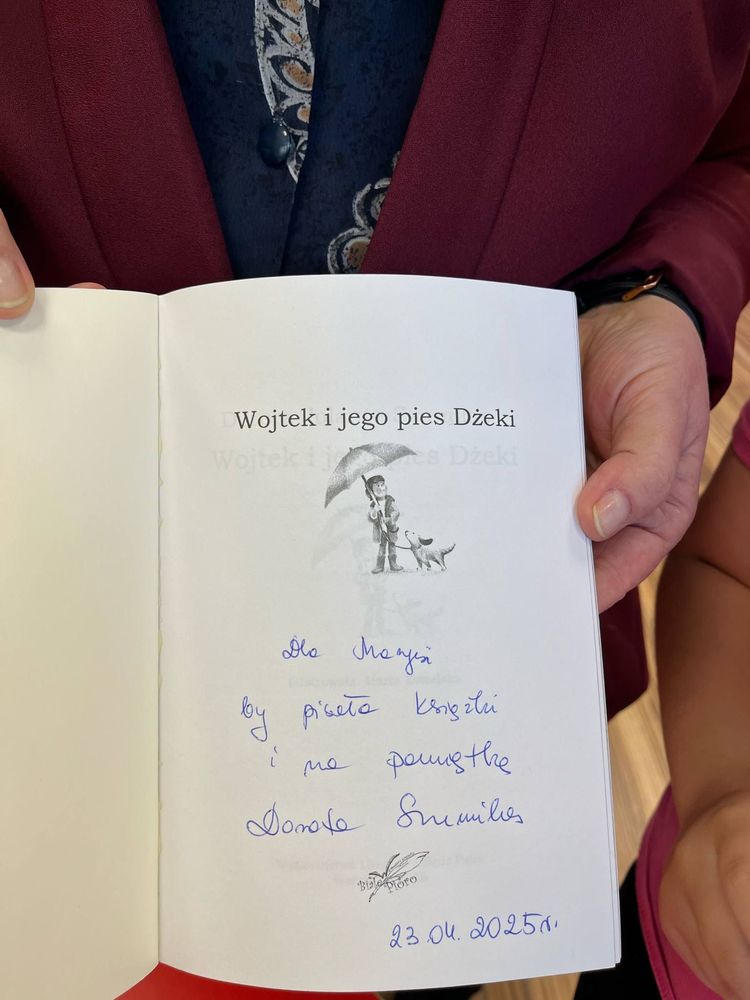 Wojtek i jego pies Dżeki
Dla Marysi
by pisała książki
i na pamiątkę
Donata
Białe Pióro
23.04.2025r.